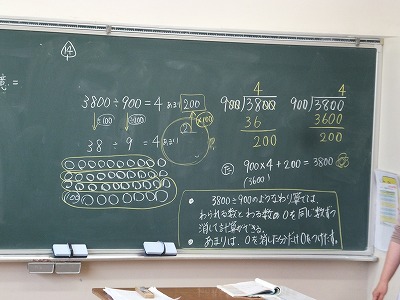 14
3800÷900=4 あまり 200
÷100 ÷100 ×100
38 ÷ 9 = 4 あまり 2
100
4
900)3800
36
200
4
900)3800
3600
200
900×4+200=3800
(3600)
• 3800÷900のようなわり算では、
わられる数とわる数の0を同じ数ずつ
消して計算ができる。
• あまりは、0を消した分だけ0をつけたす。